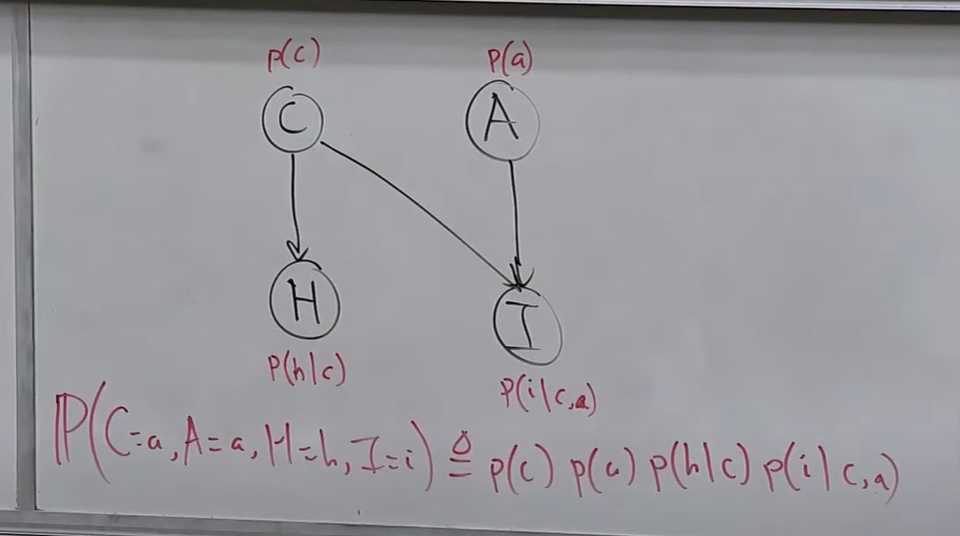 p(c) p(a)
C A
H I
p(h|c)
p(i|c,a)
ℙ(C=a, A=a, H=h, I=i) ≜ p(c) p(a) p(h|c) p(i|c,a)